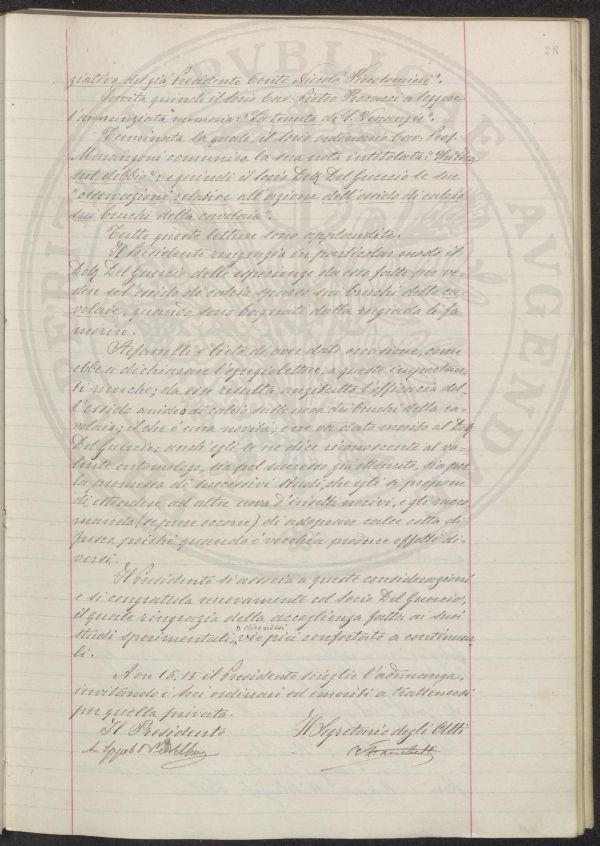 28
ziativa del già Presidente Conte Nicolò
Invita quindi il socio Cav. Pietro a leggere
l'annunziata memoria: "La tenuta di S.
Terminata la quale, il socio ordinario Cav. Prof.
Marangoni comunica la sua nota intitolata:
sul debbio"; e quindi il socio Dott. Del Guercio le sue
"osservazioni relative all'azione dell'ossido di calcio
sui bruchi della cavolaia".
Tutte queste letture sono applaudite.
Il Presidente ringrazia in particolar modo il
Dott. Del Guercio delle esperienze da esso fatte per ve-
dere se l'ossido di calcio sparso sui bruchi delle ca-
volaie, quando sono bagnati dalla rugiada li fa
morire.
Stefanelli è lieto di aver dato occasione, come
ebbe a dichiarare l'egregio lettore, a queste importan-
ti ricerche; da esse risulta anzitutto l'efficacia del-
l'ossido anidro di calcio sulle uova dei bruchi della ca-
volaia; il che è una novità; e ne va dato merito al Dott.
Del Guercio; anch'egli se ne dice riconoscente al va-
lente entomologo, sia pel successo già ottenuto, sia per
la promessa di successivi studi, che egli si propone
di estendere ad altre uova d'insetti nocivi, e gli racco-
manda (seppure occorre) di adoprare calce cotta di
fresco, poichè quando è vecchia produce effetti di-
versi.
Il Presidente si associa a queste considerazioni
e si congratula nuovamente col socio Del Guercio,
il quale ringrazia della accoglienza fatta ai suoi
studi sperimentali, dicendosi vie più confortato a continuar-
li.
A ore 15.15 il Presidente scioglie l'adunanza,
invitando i soci ordinari ed emeriti a trattenersi
per quella privata.
Il Presidente Il Segretario degli Atti
V. Franchetti
PVBLICAE
AVGENDAE